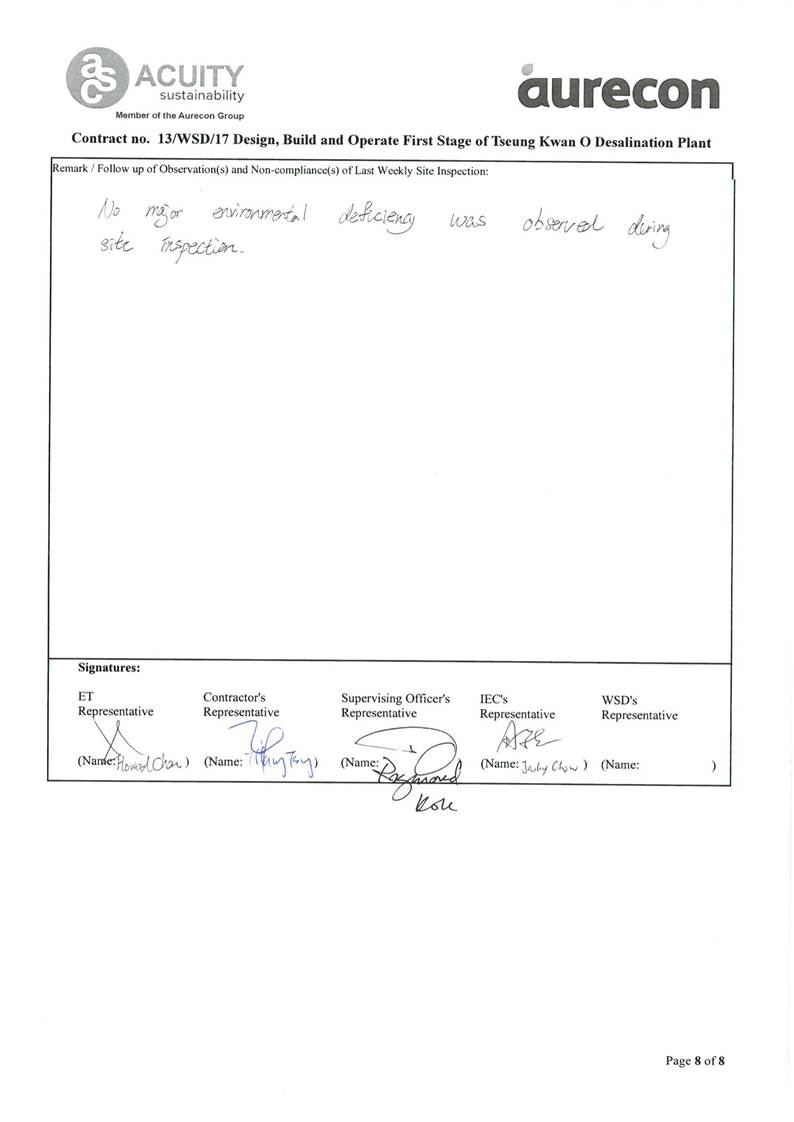 asc ACUITY
sustainability
Member of the Aurecon Group
aurecon
Contract no. 13/WSD/17 Design, Build and Operate First Stage of Tseung Kwan O Desalination Plant
Remark / Follow up of Observation(s) and Non-compliance(s) of Last Weekly Site Inspection:
No major environmental deficiency was observed during
site inspection.
Signatures:
ET Contractor's Supervising Officer's IEC's WSD's
Representative Representative Representative Representative Representative
(Name: Howard Chan ) (Name: Tsang ) (Name: Raymond (Name: Jacky Chow ) (Name: )
Page 8 of 8